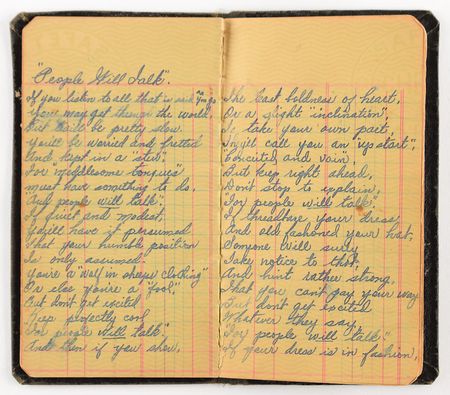 "People Will Talk"
If you listen to all that is said as you go
You may get through the world,
But it'll be pretty slow.
You'll be worried and fretted
And kept in a stew,
For meddlesome tongues
must have something to do,
And people will talk.
If quiet and modest,
You'll have it persumed
That your humble position
Is only assumed.
You're a "wolf in sheeps clothing"
Or else you're a "fool,"
But don't get excited
Keep perfectly cool
For people will talk."
And then if you show,
The least boldness of heart,
Or a slight "inclination",
To take your own part,
They'll call you an "upstart",
Concited and vain",
But keep right ahead,
Dont stop to explain,
"For people will talk"
If threadbare your dress
And old fashoned your hat,
Someone will surly
Take notice to that,
And hint rather strong,
That you can't pay your way
But don't get excited
Whatever they say
"For people will talk"
If your dress is in fashion,